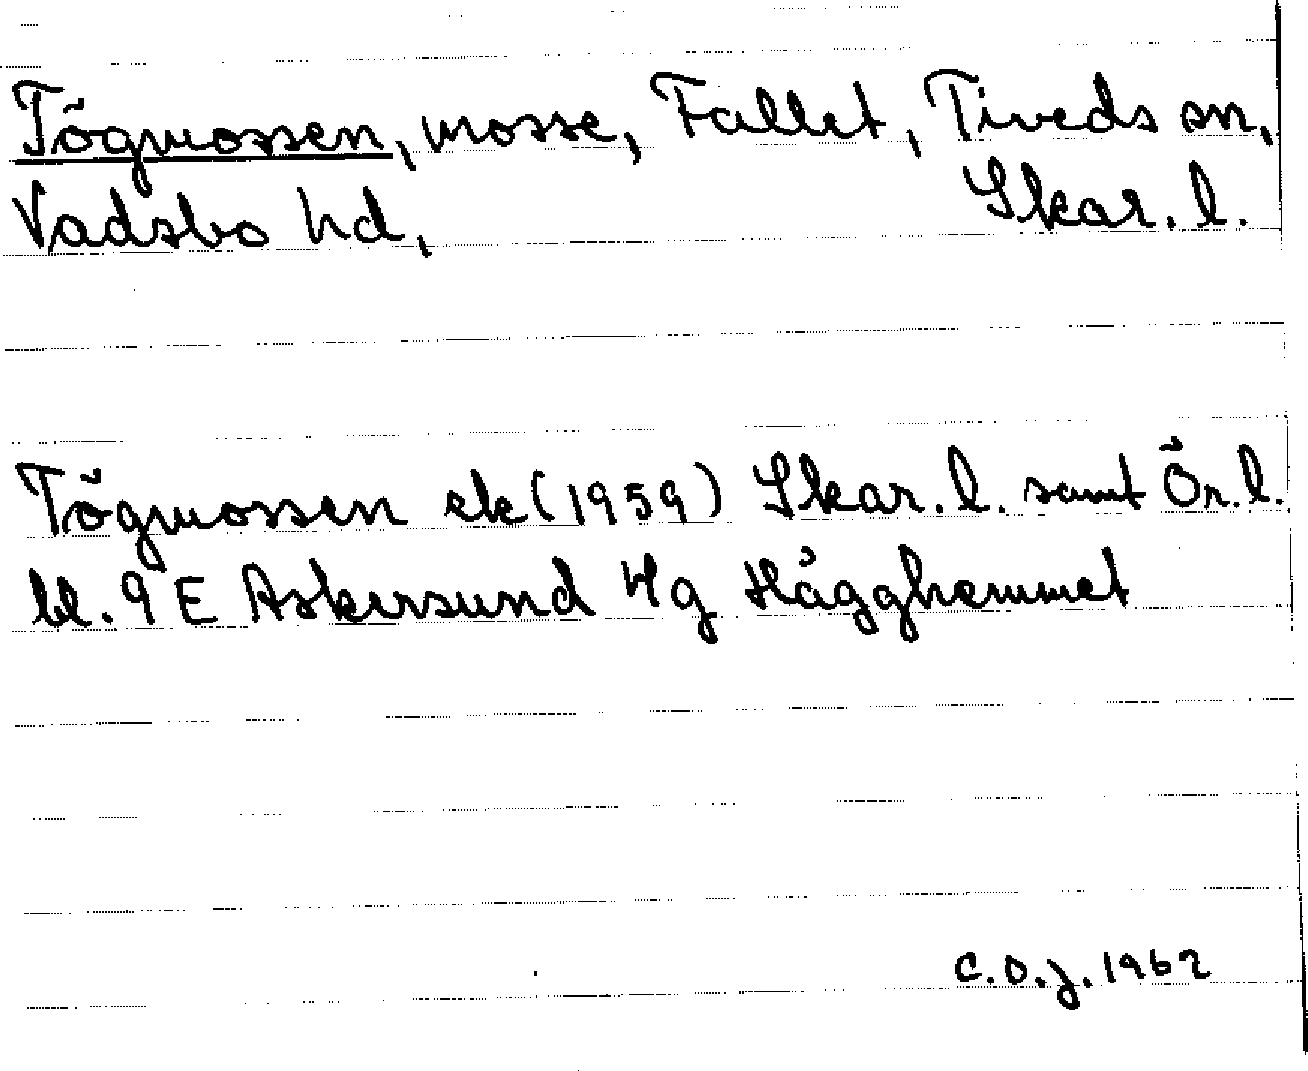 Tögmossen, mosse, Fallet, Tiveds sn,
Vadsbo hd, Skar. l.
Tögmossen ek (1959) Skar. l. samt Ör. l.
bl. 9 E Askersund 4g Hågghemmet
C.O.J. 1962